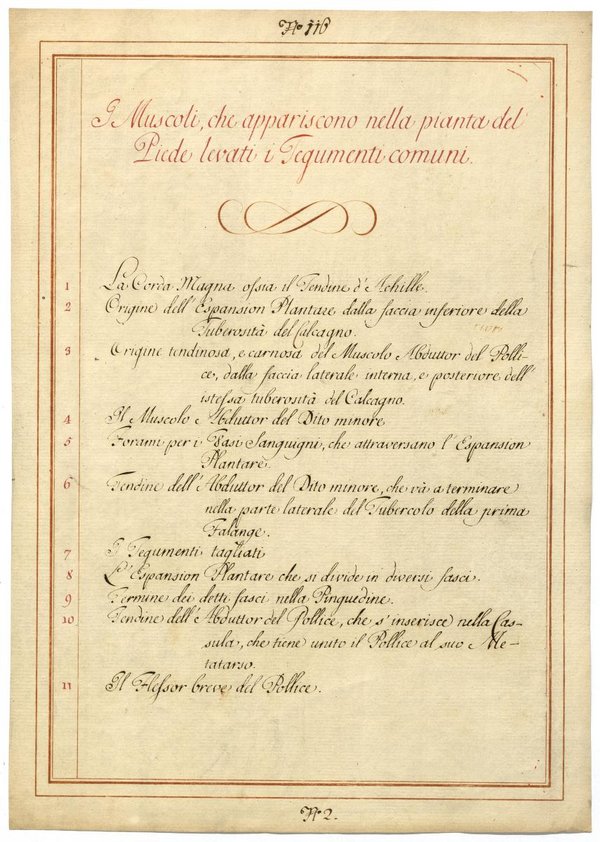 No 116
I Muscoli, che appariscono nella pianta del
Piede levati i Tegumenti comuni.
1 La Corda Magna ossia il Tendine d'Achille.
2 Origine dell'Espansion Plantare dalla faccia inferiore della
Tuberosità del Calcagno.
3 Origine tendinosa, e carnosa del Muscolo Abduttor del Polli-
ce, dalla faccia laterale interna, e posteriore dell'
istessa tuberosità del Calcagno.
4 Il Muscolo Abduttor del Dito minore
5 Forami per i Vasi Sanguigni, che attraversano l'Espansion
Plantare.
6 Tendine dell'Abduttor del Dito minore, che và a terminare
nella parte laterale del Tubercolo della prima
Falange.
7 I Tegumenti tagliati
8 L'Espansion Plantare che si divide in diversi fasci.
9 Termine dei detti fasci nella Pinguedine.
10 Tendine dell'Abduttor del Pollice, che s'inserisce nella Cas-
sula, che tiene unito il Pollice al suo Me-
tatarso.
11 Il Flessor breve del Pollice.
No 2.